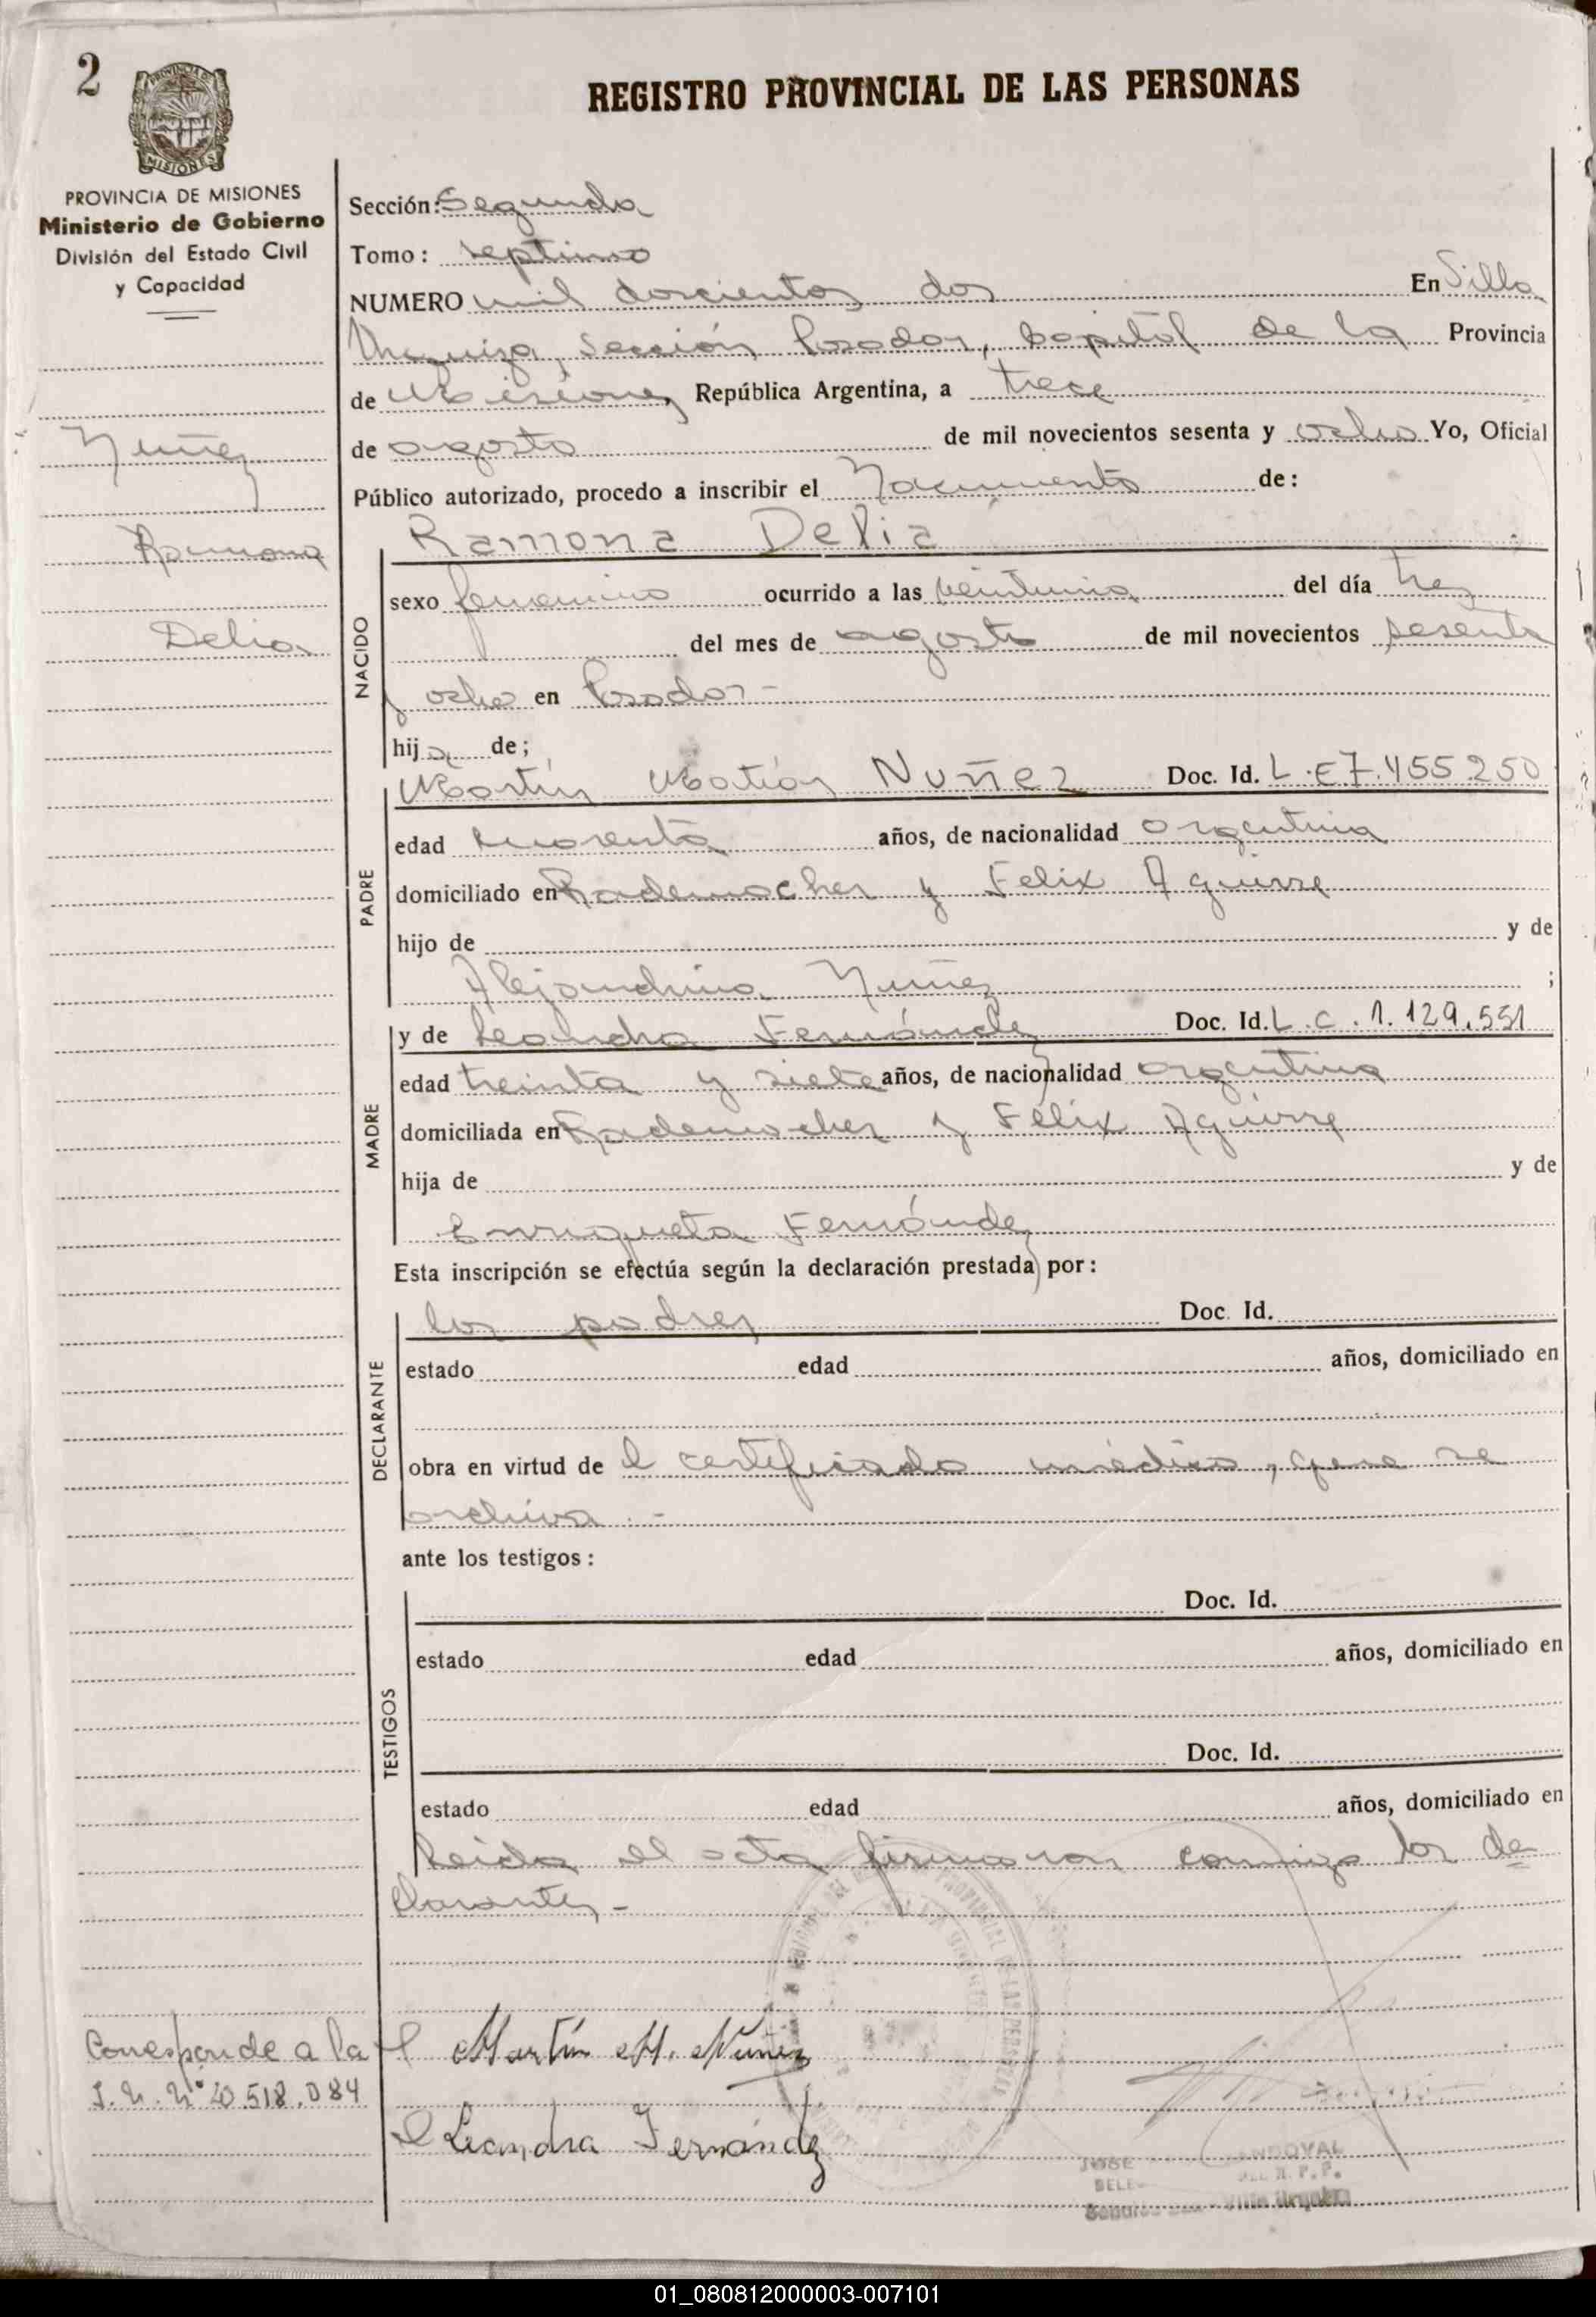 2
REGISTRO PROVINCIAL DE LAS PERSONAS
PROVINCIA DE MISIONES
Ministerio de Gobierno
División del Estado Civil
y Capacidad
Nuñez
Ramona
Delia
Sección: Segunda
Tomo: septimo
NUMERO mil doscientos dos En Villa
Urquiza, Sección Posadas, Capital de la Provincia
de Misiones República Argentina, a trece
de agosto de mil novecientos sesenta y ocho Yo, Oficial
Público autorizado, procedo a inscribir el Nacimiento de:
Ramona Delia
NACIDO
sexo femenino ocurrido a las veintiuna del día tres
del mes de agosto de mil novecientos sesenta
y ocho en Posadas-
hija de;
PADRE
Martín Matías Nuñez Doc. Id. L.E 7.455.250
edad cuarenta años, de nacionalidad argentina
domiciliado en Rademacher y Felix Aguirre
hijo de y de
Alejandrina Nuñez ;
MADRE
y de Leandra Fernández Doc. Id. L.C. 1.129.551
edad treinta y siete años, de nacionalidad argentina
domiciliada en Rademacher y Félix Aguirre
hija de y de
Enriqueta Fernández
Esta inscripción se efectúa según la declaración prestada por:
DECLARANTE
los padres Doc. Id.
estado edad años, domiciliado en
obra en virtud de l certificado médico, que se
archiva.-
ante los testigos:
TESTIGOS
Doc. Id.
estado edad años, domiciliado en
Doc. Id.
estado edad años, domiciliado en
Leída el acta firmaron conmigo los de
clarantes.-
Corresponde a la
Martín M. Nuñez
Leandra Fernández
JOSE SANDOVAL
01_080812000003-007101